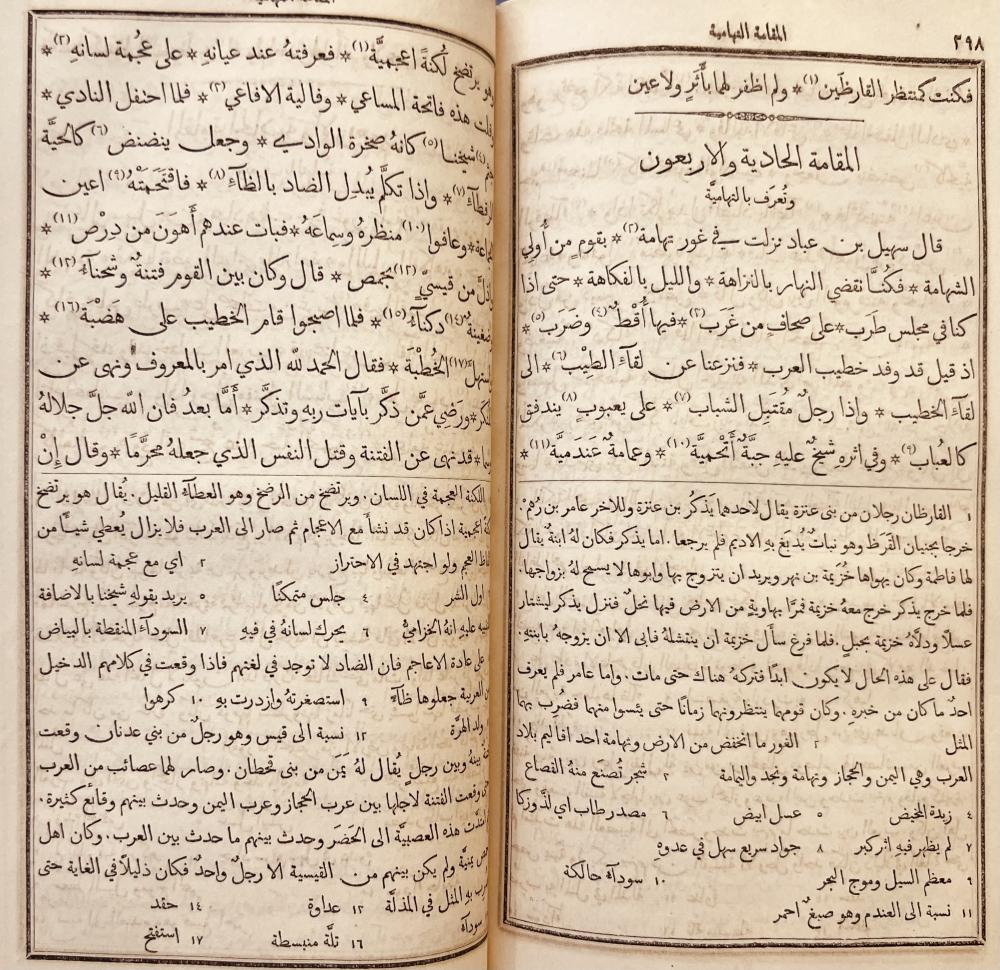 المقامة التهامية
٢٩٨
فكنت كمنتظر القارظَين (١) * ولم اظفر لهما بأَثَرٍ ولا عين
المقامة الحادية والاربعون
وتُعرَف بالتهاميَّة
قال سهيل بن عباد نزلت في غور تهامة (٢) * بقوم من أُولي
الشهامة * فكُنَّا نقضي النهار بالنزاهة * والليل بالفكاهة * حتى اذا
كنا في مجلس طَرَب * على صحافٍ من غَرَب (٣) * فيها أَقْطٌ (٤) وضَرَب (٥) *
اذ قيل قد وفد خطيب العرب * فنزعنا عن لقاءِ الطِيْب (٦) * الى
لقاءِ الخطيب * واذا رجلٌ مُقتَبِل الشباب (٧) * على يعبوبٍ (٨) يندفق
كالعُباب (٩) * وفي اثرهِ شيخٌ عليهِ جبَّةٌ أَتْحَميَّة (١٠) * وعمامةٌ عَندَميَّة (١١) *
١ القارظان رجلان من بني عنزة يقال لاحدهما يَذكُر بن عنزة وللاخر عامر بن رُهْمٍ.
خرجا يجنيان القَرَظ وهو نباتٌ يُدبَغ بهِ الاديم فلم يرجعا. اما يذكر فكان لهُ ابنةٌ يقال
لها فاطمة وكان يهواها خُزَيمة بن نهر ويريد ان يتزوج بها وابوها لا يسمح لهُ بزواجها.
فلما خرج يذكر خرج معهُ خزيمة فمرَّا بهاويةٍ من الارض فيها نحلٌ فنزل يذكر ليشتار
عسلًا ودلَّاهُ خزيمة بحبلٍ. فلما فرغ سأَل خزيمة ان ينتشلهُ فابى الا ان يزوجهُ بابنتهِ.
فقال على هذه الحال لا يكون ابدًا فتركهُ هناك حتى مات. واما عامر فلم يعرف
احدٌ ما كان من خبرهِ. وكان قومهما ينتظرونهما زمانًا حتى يئسوا منهما فضُرِب بهما
المثل ٢ الغور ما انخفض من الارض وتهامة احد اقاليم بلاد
العرب وهي اليمن والحجاز وتهامة ونجد واليمامة ٣ شجر تُصنَع منهُ القصاع
٤ زبدة المخيض ٥ عسل ابيض ٦ مصدر طاب اي لذَّ وزكا
٧ لم يظهر فيهِ اثر كبر ٨ جواد سريع سهل في عدوهِ
٩ معظم السيل وموج البحر ١٠ سودآءَ حالكة
١١ نسبة الى العندم وهو صبغٌ احمر
وهو يرتضخ لُكنةً اعجميَّة (١) * فعرفتهُ عند عيانهِ * على عُجمة لسانهِ (٢) *
وقلت هذه فاتحة المساعي * وفالية الافاعي (٣) * فلما احتفل النادي *
(٤) شيخنا (٥) كانهُ صخرة الوادي * وجعل ينضنض (٦) كالحيَّة
الرقطآءِ (٧) * واذا تكلَّم يُبدِل الضاد بالظآءِ (٨) * فاقتَحَمَتْهُ (٩) اعين
الجماعة * وعافوا (١٠) منظرهُ وسماعَهُ * فبات عندهم أَهوَنَ من دِرْص (١١) *
واذلَّ من قيسيٍّ (١٢) بحمص * قال وكان بين القوم فتنةٌ وشحنآءُ (١٣) *
وضغينةٌ (١٤) دكنآءُ (١٥) * فلما اصبحوا قام الخطيب على هَضْبَة (١٦) *
(١٧) الخُطْبَة * فقال الحمد لله الذي امر بالمعروف ونهى عن
المنكر * ورَضِي عمَّن ذكَّر بآيات ربهِ وتذكَّر * أَمَّا بعدُ فان الله جلَّ جلالهُ
قد نهى عن الفتنة وقتل النفس الذي جعلهُ محرَّمًا * وقال إِنْ
اللكنة العجمة في اللسان. ويرتضخ من الرضخ وهو العطآءُ القليل. يُقال هو يرتضخ
لكنةً اعجمية اذا كان قد نشأَ مع الاعجام ثم صار الى العرب فلا يزال يُعطي شيئًا من
الفاظ العجم ولو اجتهد في الاحتراز ٢ اي مع عجمة لسانهِ
اول الشر ٤ جلس متمكنًا ٥ يريد بقولهِ شيخنا بالاضافة
عليهِ انهُ الخزاميُّ ٦ يحرك لسانهُ في فيهِ ٧ السودآءِ المنقطة بالبياض
على عادة الاعاجم فان الضاد لا توجد في لغتهم فاذا وقعت في كلامهم الدخيل
من العربية جعلوها ظآءً ٩ استصغرتهُ وازدرت بهِ ١٠ كرهوا
ولد الهرَّة ١٢ نسبة الى قيس وهو رجلٌ من بني عدنان وقعت
بينهُ وبين رجلٍ يُقال لهُ يَمَن من بني قحطان. وصار لهما عصائب من العرب
وقعت الفتنة لاجلها بين عرب الحجاز وعرب اليمن وحدث بينهم وقائع كثيرة.
امتدَّت هذه العصبيَّة الى الحَضَر وحدث بينهم ما حدث بين العرب. وكان اهل
حمص يمنيَّة ولم يكن بينهم من القيسية الا رجلٌ واحدٌ فكان ذليلًا في الغاية حتى
ضُرِب بهِ المثل في المذلَّة ١٣ عداوة ١٤ حقد
سودآءُ ١٦ تلَّة منبسطة ١٧ استفتح